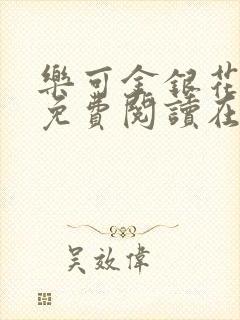 樂可金銀花
免費閱讀在
吴效偉